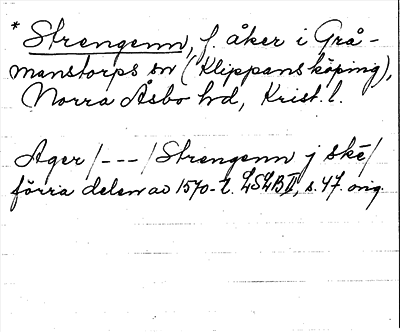 * Strengenn, f. åker i Grå-
manstorps sn (Klippans köping),
Norra Åsbo hd, Krist. l.
Ager/---/Strengenn j ske/
förra delen av 1570-t. LSLB II, s. 47. orig.